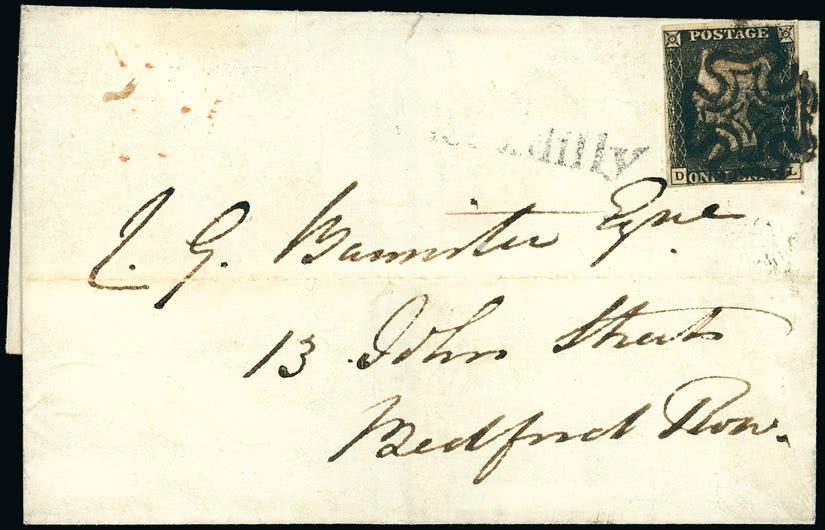 POSTAGE
D ONE PENNY L
J. G. Bannister Esqre
13 John Street
Bedford Row.